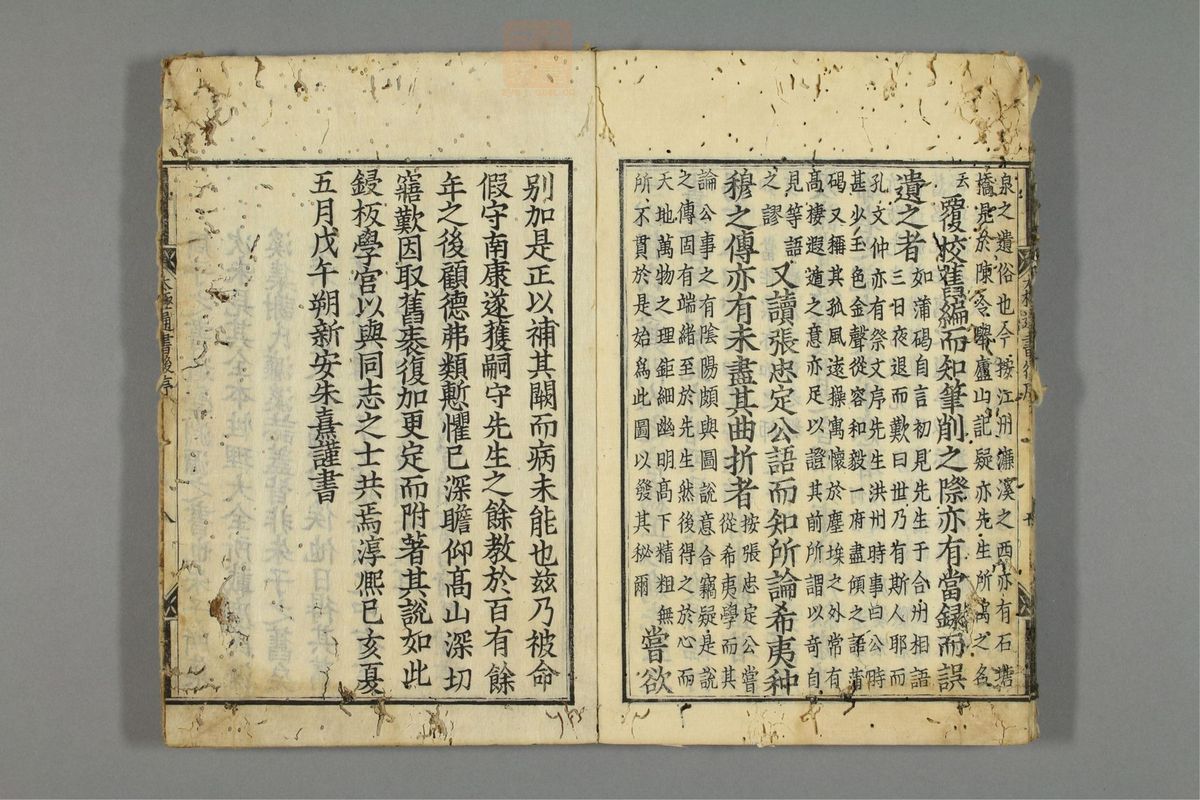 泉之遺俗也今按江州濂溪之西亦有石塘
橋見於陳令舉廬山記疑亦先生所寓之名
云
覆校舊編而知筆削之際亦有當錄而誤
遺之者
如蒲碣自言初見先生于合州相語
三日夜退而歎曰世乃有斯人耶而
孔文仲亦有祭文序先生洪州時事曰公時
甚少玉色金聲從容和毅一府盡傾之語蒲
碣又稱其孤風遠操寓懷於塵埃之外常有
高棲遐遁之意亦足以證其前所謂以奇自
見等語
之謬
又讀張忠定公語而知所論希夷种
穆之傳亦有未盡其曲折者
按張忠定公嘗
從希夷學而其
論公事之有陰陽頗與圖說意合竊疑是說
之傳固有端緒至於先生然後得之於心而
天地萬物之理鉅細幽明高下精粗無
所不貫於是始為此圖以發其秘爾
嘗欲
別加是正以補其闕而病未能也玆乃被命
假守南康遂獲嗣守先生之餘教於百有餘
年之後顧德弗類慙懼已深瞻仰高山深切
寤歎因取舊袠復加更定而附著其說如此
鋟板學官以與同志之士共焉淳熈己亥夏
五月戊午朔新安朱熹謹書
太極通書後序